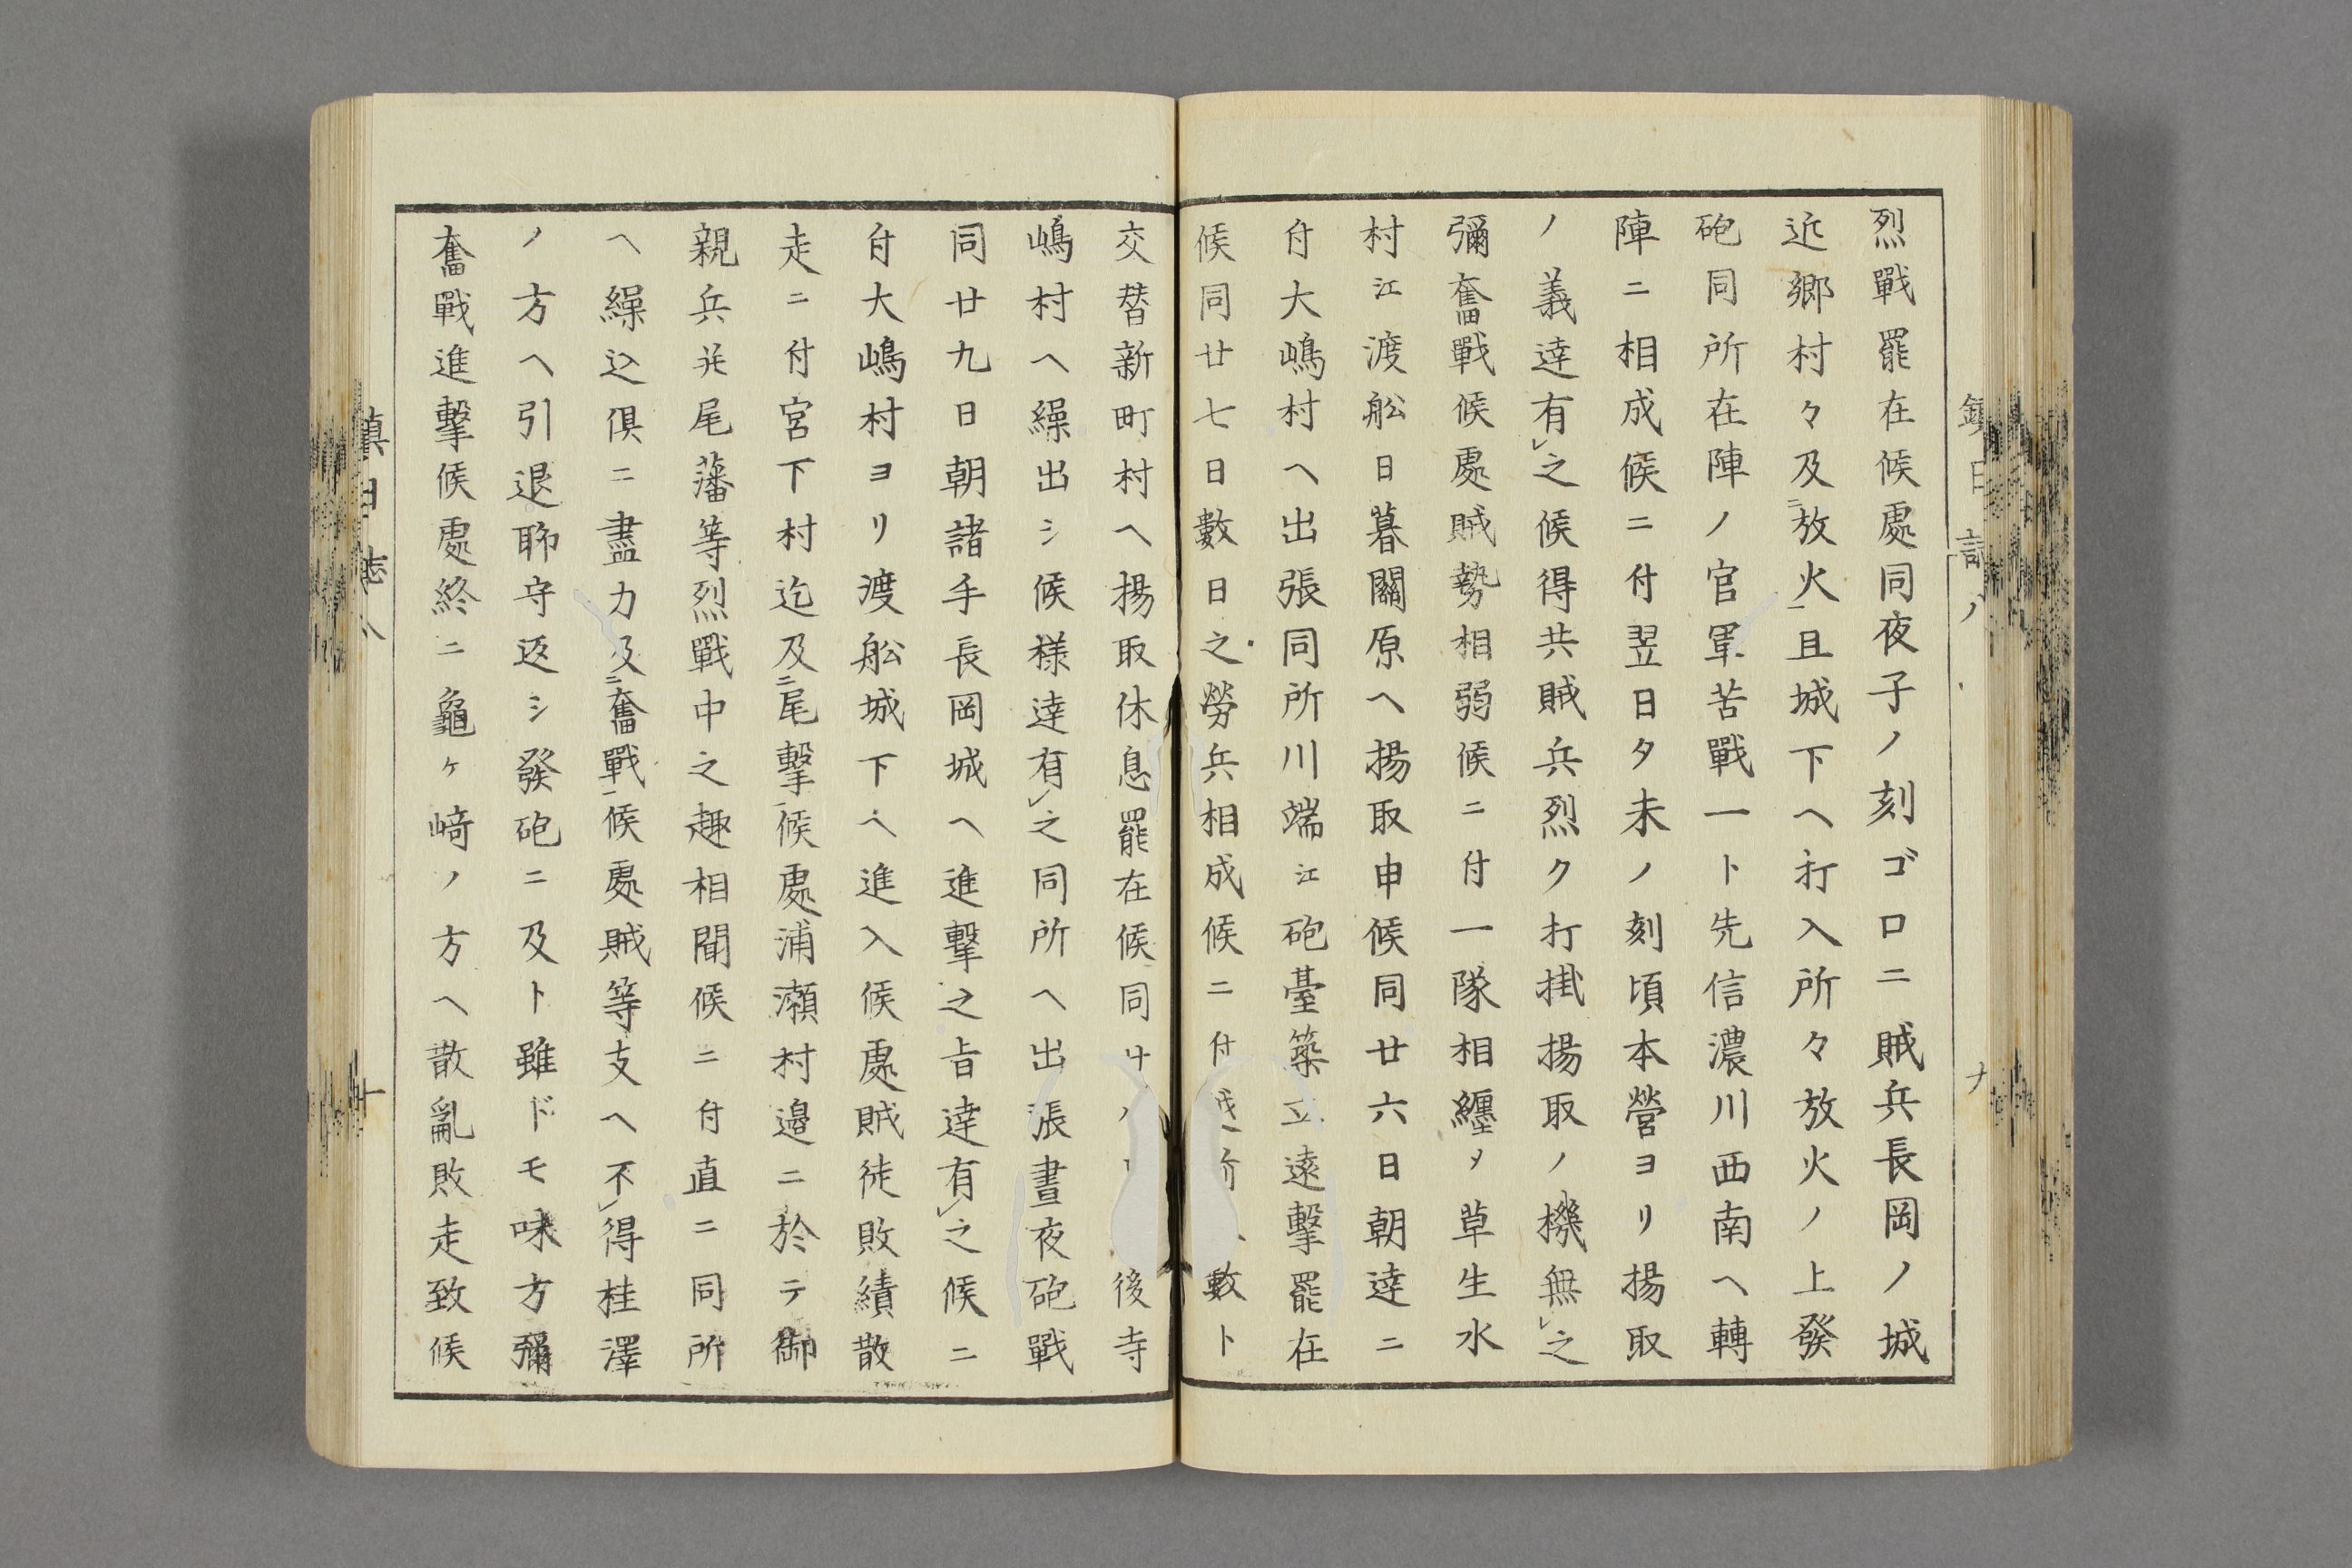 烈戰罷在候處同夜子ノ刻ゴロニ賊兵長岡ノ城
近鄉村々及ニ放火一且城下ヘ打入所々放火ノ上發
砲同所在陣ノ官軍苦戰一ト先信濃川西南ヘ轉
陣ニ相成候ニ付翌日夕未ノ刻頃本營ヨリ揚取
ノ義達有レ之候得共賊兵烈ク打掛揚取ノ機無レ之
彌奮戰候處賊勢相弱候ニ付一隊相纒メ草生水
村江渡舩日暮關原ヘ揚取申候同廿六日朝達ニ
付大嶋村ヘ出張同所川端江砲臺築立遠擊罷在
候同廿七日數日之勞兵相成候ニ付 數ト
交替新町村ヘ揚取休息罷在候同廿 後寺
嶋村ヘ繰出シ候樣達有レ之同所ヘ出張晝夜砲戰
同廿九日朝諸手長岡城ヘ進擊之旨達有レ之候ニ
付大嶋村ヨリ渡舩城下ヘ進入候處賊徒敗績散
走ニ付宮下村迄及ニ尾擊一候處浦瀬村邉ニ於テ御
親兵并尾藩等烈戰中之趣相聞候ニ付直ニ同所
ヘ繰込俱ニ盡力及ニ奮戰一候處賊等支ヘ不レ得桂澤
ノ方ヘ引退聊守返シ發砲ニ及ト雖ドモ味方彌
奮戰進擊候處終ニ龜ヶ﨑ノ方ヘ散亂敗走致候
鎮日誌八
十